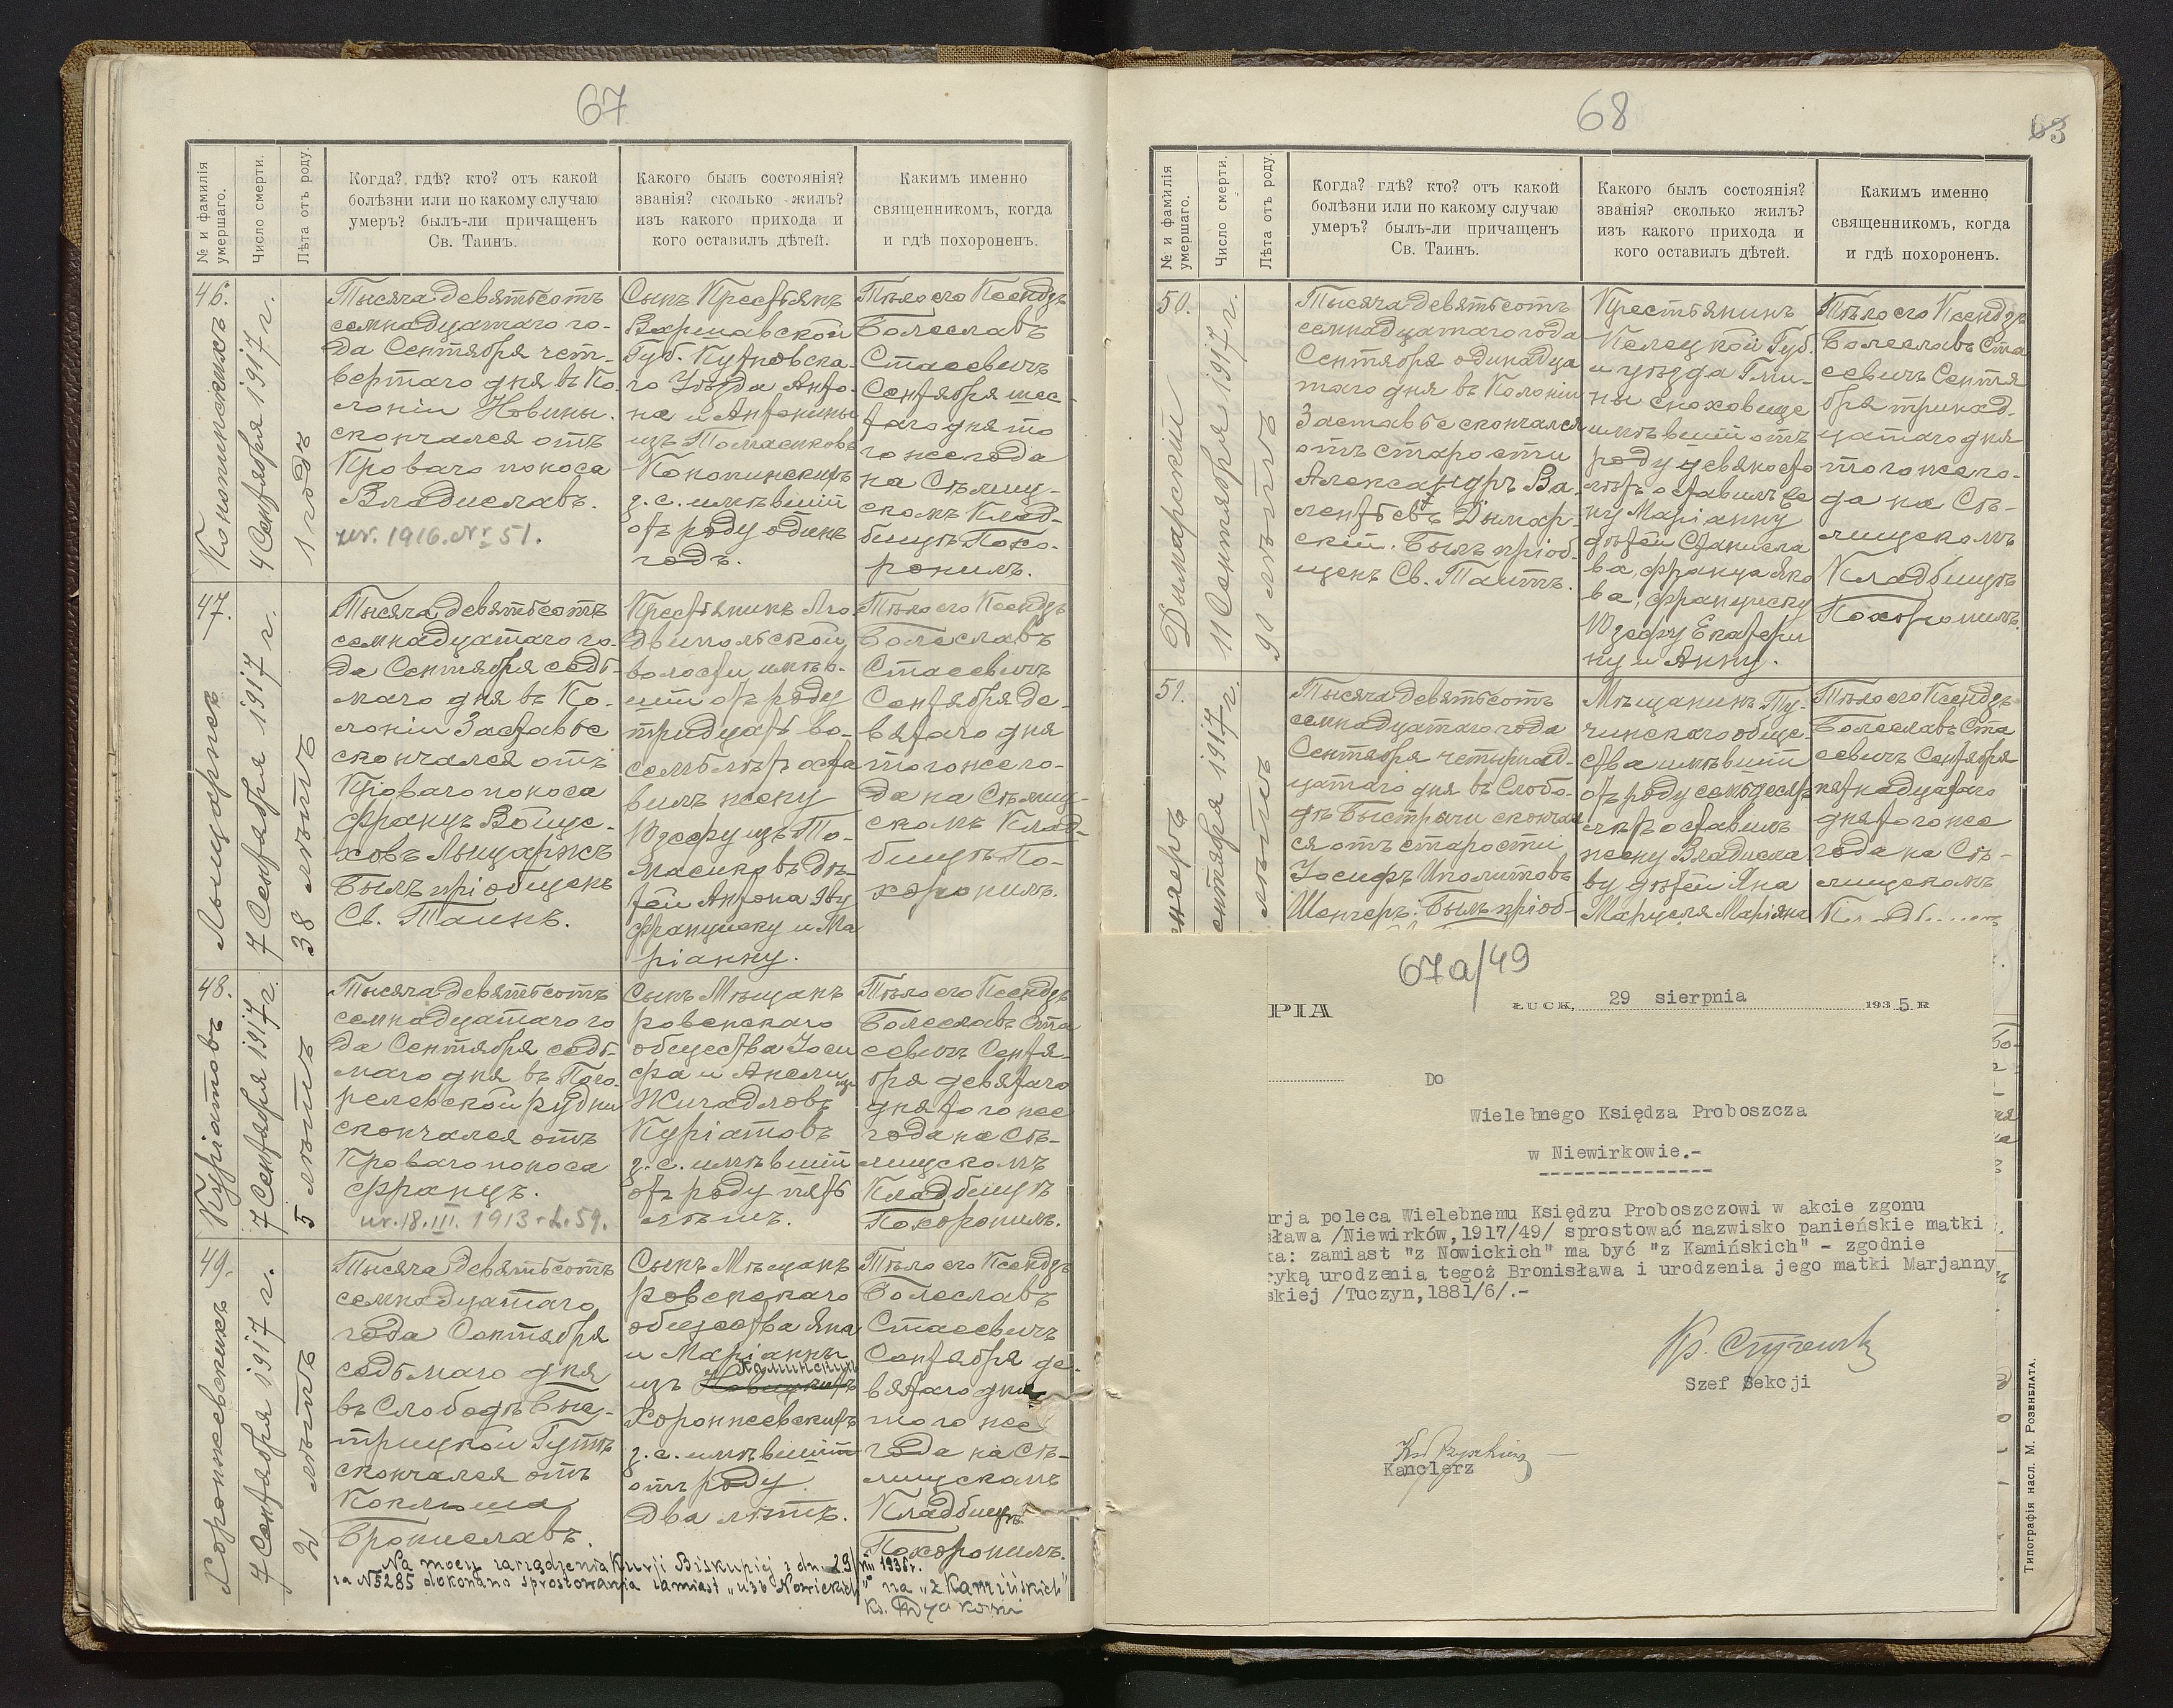 67
№ и фамилія умершаго.
Число смерти.
Лѣта отъ роду.
Когда? гдѣ? кто? отъ какой
болѣзни или по какому случаю
умеръ? былъ-ли причащенъ
Св. Таинъ.
Какого былъ состоянія?
званія? сколько жилъ?
изъ какого прихода и
кого оставилъ дѣтей.
Какимъ именно
священникомъ, когда
и гдѣ похороненъ.
46.
4 Сентября 1917 г.
1 годъ
Тысяча девятьсотъ
семнадцатаго го-
да Сентября чет-
вертаго дня въ Ко-
лоніи Новины
скончался отъ
Кроваго поноса
Владиславъ.
ur. 1916. Nr 51.
Сынъ Крестьянъ
Варшавской
Губ. Кутновска-
го Уѣзда Анто-
на и Антонины
изъ Томасиковъ
з. с. имѣвшій
отъ роду одинъ
годъ.
Тѣло его Ксендзъ
Болеславъ
Стасевичъ
Сентября шес-
таго дня то
го же года
на Сѣлищ-
скомъ Клад-
бищѣ Похо-
ронилъ.
47.
7 Сентября 1917 г.
38 лѣтъ
Тысяча девятьсотъ
семнадцатаго го-
да Сентября седь-
маго дня въ Ко-
лоніи Заставье
скончался отъ
Кроваго поноса
Францъ Войце-
ховъ Лыщаржъ
Былъ пріобщенъ
Св. Таинъ.
волости имѣв-
шій отъ роду
тридцать во-
семь лѣтъ оста
вилъ жену
Юзефу изъ То-
масиковъ дѣ-
тей Антона Эву
Францишку и Ма
ріанну.
Тѣло его Ксендзъ
Болеславъ
Стасевичъ
Сентября де-
вятаго дня
того же го-
да на Сѣлищ-
скомъ Клад-
бищѣ По-
хоронилъ.
48.
Куріатовъ
7 Сентября 1917 г.
5 лѣтъ
Тысяча девятьсотъ
семнадцатаго го
да Сентября седь-
маго дня въ Пого-
релевской Рудни
скончался отъ
Кроваго поноса
Францъ.
ur. 18. III. 1913 r. L. 59.
Сынъ Мѣщанъ
ровенскаго
общества Іоси
фа и Анели изъ
Куріатовъ
з. с. имѣвшій
отъ роду пять
лѣтъ.
Тѣло его Ксендзъ
Болеславъ Ста
севичъ Сентя-
бря девятаго
дня того же
года на Сѣ-
лищскомъ
Кладбищѣ
Похоронилъ.
49.
Хоронжевскихъ
7 Сентября 1917 г.
2 лѣтъ
Тысяча девятьсотъ
семнадцатаго
года Сентября
седьмаго дня
въ Слободѣ Быс-
трицкой Гутѣ
скончался отъ
Коклюша
Брониславъ.
Сынъ Мѣщанъ
ровенскаго
общества Яна
и Маріанны
Каминскихъ
изъ Новицкихъ
Хоронжевскихъ
з. с. имѣвшій
отъ роду
два лѣтъ.
Тѣло его Ксендзъ
Болеславъ
Стасевичъ
Сентября де-
вятаго дня
того же
года на Сѣ-
лищскомъ
Кладбищѣ
Похоронилъ.
Na mocy zarządzenia Kurji Biskupiej z dn. 29/VIII 1935 r.
za N 5285 dokonano sprostowania zamiast „изъ Nowickich" na „z Kamińskich"
68
63
№ и фамилія умершаго.
Число смерти.
Лѣта отъ роду.
Когда? гдѣ? кто? отъ какой
болѣзни или по какому случаю
умеръ? былъ-ли причащенъ
Св. Таинъ.
Какого былъ состоянія?
званія? сколько жилъ?
изъ какого прихода и
кого оставилъ дѣтей.
Какимъ именно
священникомъ, когда
и гдѣ похороненъ.
50.
Дымарскій
11 Сентября 1917 г.
90 лѣтъ
Тысяча девятьсотъ
семнадцатаго года
Сентября одинадца
таго дня въ Колоніи
Заставье скончался
отъ старости
Александръ Ва-
лентьевъ Дымар-
скій. Былъ пріоб-
щенъ Св. Таинъ.
Крестьянинъ
Келецкой Губ.
и уѣзда Гми-
ны
имѣвшій отъ
роду девяносто
лѣтъ оставилъ же
ну Маріанну
дѣтей Станисла
ва, Франца Яко
ва, Францишку
Юзефу Екатери
ну и Анну.
Тѣло его Ксендзъ
Болеславъ Ста
севичъ Сентя
бря тринад-
цатаго дня
того же го-
да на Сѣ-
лищскомъ
Кладбищѣ
Похоронилъ.
51.
Тысяча девятьсотъ
семнадцатаго года
Сентября четырнад-
цатаго дня въ Слобо-
дѣ Быстричи скончал
ся отъ старости
Іосифъ Иполитовъ
Шенгеръ. Былъ пріоб-
Мѣщанинъ Ту-
чинскаго обще-
ства имѣвшій
отъ роду семьдесятъ
лѣтъ оставилъ
жену Владисла
ву дѣтей Яна
Марцеля Маріянн
Тѣло его Ксендзъ
Болеславъ Ста
севичъ Сентября
пятнадцатаго
дня того же
года на Сѣ-
лищскомъ
67a/49
PIA
ŁUCK, 29 sierpnia 1935 R
Do
Wielebnego Księdza Proboszcza
w Niewirkowie.-
urja poleca Wielebnemu Księdzu Proboszczowi w akcie zgonu
sława /Niewirków,1917/49/ sprostować nazwisko panieńskie matki
ka: zamiast "z Nowickich" ma być "z Kamińskich" - zgodnie
ryką urodzenia tegoż Bronisława i urodzenia jego matki Marjanny
skiej /Tuczyn,1881/6/.-
Szef Sekcji
Kanclerz
Типографія насл. М. Розенблата.